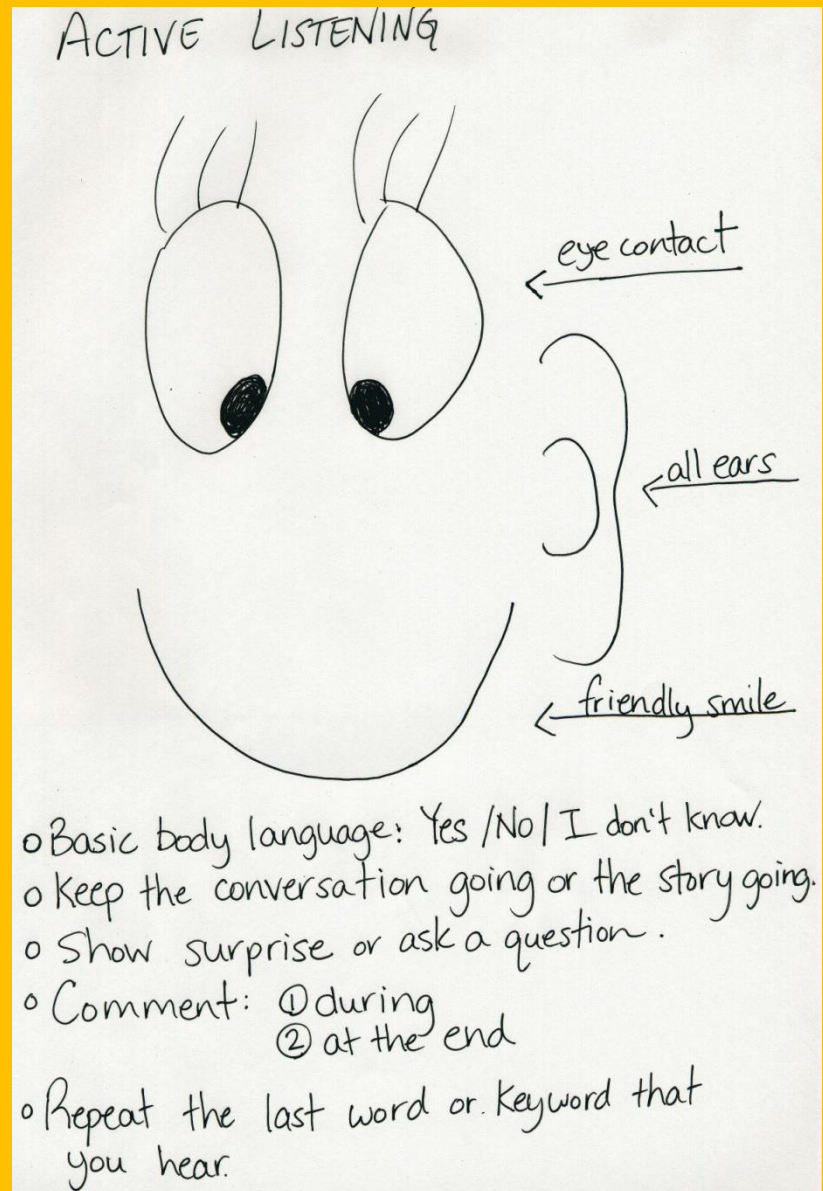 ACTIVE LISTENING
eye contact
all ears
friendly smile
o Basic body language: Yes / No / I don't know.
o Keep the conversation going or the story going.
o Show surprise or ask a question.
o Comment: ① during
② at the end
o Repeat the last word or. Keyword that
you hear.